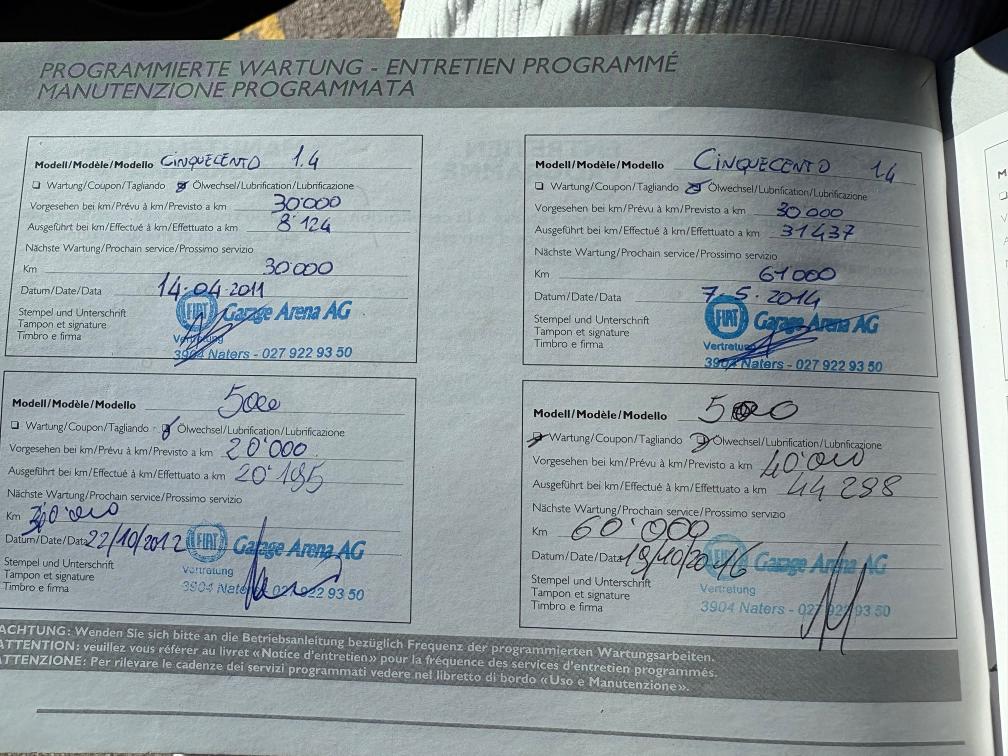 PROGRAMMIERTE WARTUNG - ENTRETIEN PROGRAMMÉ
MANUTENZIONE PROGRAMMATA
Modell/Modèle/Modello CINQUECENTO 1.4
Wartung/Coupon/Tagliando Ölwechsel/Lubrification/Lubrificazione
Vorgesehen bei km/Prévu à km/Previsto a km 30'000
Ausgeführt bei km/Effectué à km/Effettuato a km 8'124
Nächste Wartung/Prochain service/Prossimo servizio
Km 30'000
Datum/Date/Data 14.04.2011
Stempel und Unterschrift
Tampon et signature
Timbro e firma
FIAT Garage Arena AG
Vertretung
3904 Naters - 027 922 93 50
Modell/Modèle/Modello 500
Wartung/Coupon/Tagliando Ölwechsel/Lubrification/Lubrificazione
Vorgesehen bei km/Prévu à km/Previsto a km 20'000
Ausgeführt bei km/Effectué à km/Effettuato a km 20'185
Nächste Wartung/Prochain service/Prossimo servizio
Km
Datum/Date/Data 22/10/2012
Stempel und Unterschrift
Tampon et signature
Timbro e firma
FIAT Garage Arena AG
Vertretung
3904 Naters - 027 922 93 50
Modell/Modèle/Modello CINQUECENTO 1.4
Wartung/Coupon/Tagliando Ölwechsel/Lubrification/Lubrificazione
Vorgesehen bei km/Prévu à km/Previsto a km 30000
Ausgeführt bei km/Effectué à km/Effettuato a km 31437
Nächste Wartung/Prochain service/Prossimo servizio
Km 61000
Datum/Date/Data 7.5.2014
Stempel und Unterschrift
Tampon et signature
Timbro e firma
FIAT Garage Arena AG
Vertretung
3904 Naters - 027 922 93 50
Modell/Modèle/Modello 500
Wartung/Coupon/Tagliando Ölwechsel/Lubrification/Lubrificazione
Vorgesehen bei km/Prévu à km/Previsto a km 40'000
Ausgeführt bei km/Effectué à km/Effettuato a km 44288
Nächste Wartung/Prochain service/Prossimo servizio
Km 60'000
Datum/Date/Data 19/10/2016
Stempel und Unterschrift
Tampon et signature
Timbro e firma
FIAT Garage Arena AG
Vertretung
3904 Naters - 027 922 93 50
ACHTUNG: Wenden Sie sich bitte an die Betriebsanleitung bezüglich Frequenz der programmierten Wartungsarbeiten.
ATTENTION: veuillez vous référer au livret «Notice d'entretien» pour la fréquence des services d'entretien programmés.
ATTENZIONE: Per rilevare le cadenze dei servizi programmati vedere nel libretto di bordo «Uso e Manutenzione».